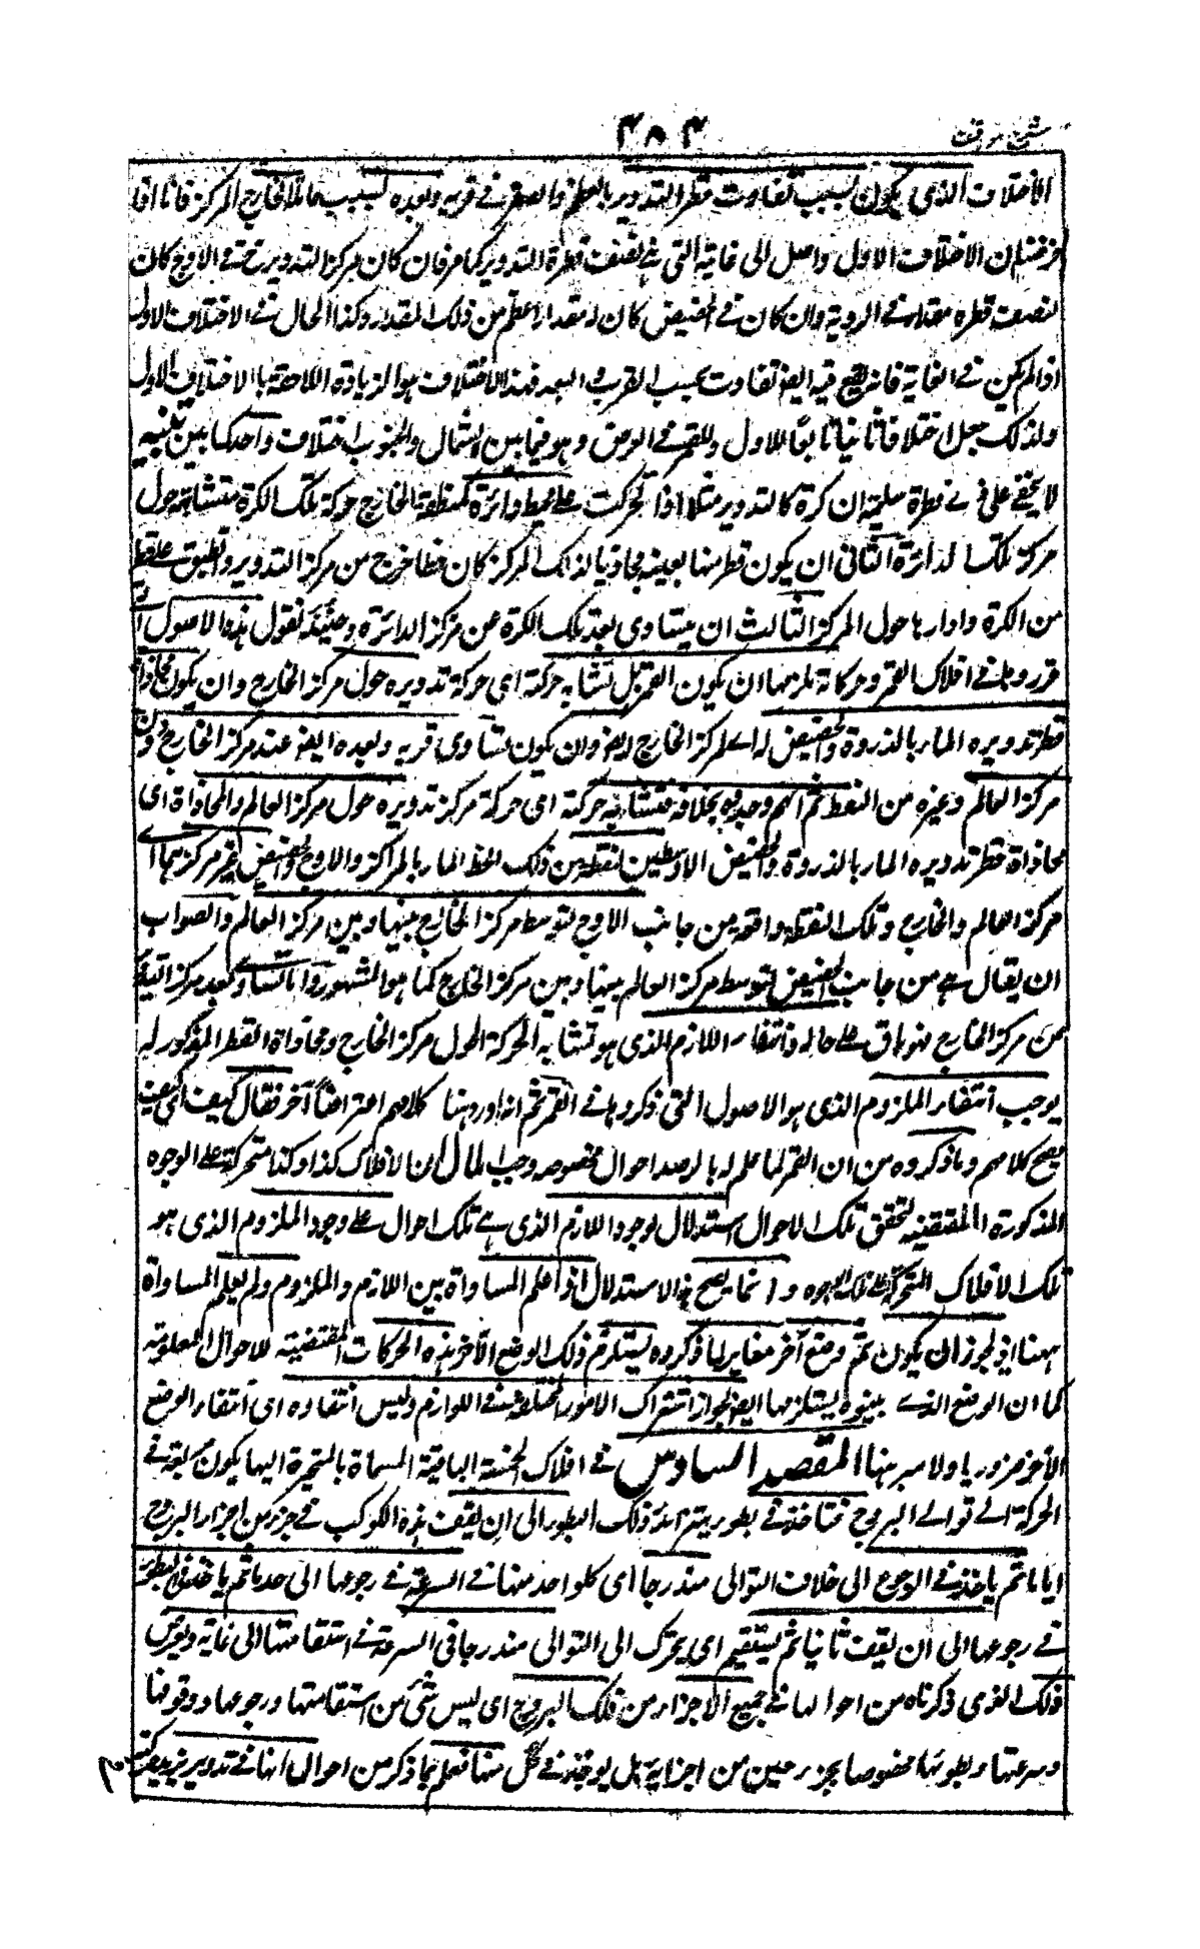 شرح مواقف
٤٥٤
الاختلاف الذى يكون بسبب تفاوت قطر التدوير بالعظم والصغر فى قربه وبعده بسبب حامله الخارج المركز فانا اذا
فرضنا ان الاختلاف الاول واصل الى غايته التى هى نصف قطر التدوير كما مر فان كان مركز التدوير فى الاوج كان
لنصف قطره مقدار فى الروية وان كان فى الحضيض كان له مقدار اعظم من ذلك المقدار وكذا الحال فى الاختلاف الاول
اذا لم يكن فى الغاية فانه يقع فيه ايضا تفاوت بحسب القرب والبعد فهذا الاختلاف هو الزيادة اللاحقة بالاختلاف الاول
ولذلك جعل اختلافا ثانيا تابعا للاول وللقمر فى العرض وهو فيما بين الشمال والجنوب اختلاف واحد كما بين تنبيه
لا يخفى على ذى فطرة سليمة ان كرة كالتدوير مثلا اذا تحركت على محيط دائرة كمنطقة الخارج حركة تلك الكرة متشابهة حول
مركز تلك الدائرة الثانى ان يكون قطر منها بعينه محاذيا لذلك المركز كان خطا خرج من مركز التدوير وانطبق على قطر
من الكرة وادارها حول المركز الثالث ان يتساوى بعد تلك الكرة عن مركز الدائرة وحينئذ نقول هذه الاصول التى
قرروها فى افلاك القمر وحركاته يلزمها ان يكون القمر بل تشابه حركته اى حركة تدويره حول مركز الخارج وان يكون محاذاة
قطر تدويره المار بالذروة والحضيض له اى لمركز الخارج ايضا وان يكون تساوى قربه وبعده ايضا عند مركز الخارج دون
مركز العالم وغيره من النقط ثم انهم وجدوه بخلافه فتشابه حركته اى حركة مركز تدويره حول مركز العالم والمحاذاة اى
محاذاة قطر تدويره المار بالذروة والحضيض الاوسطين لنقطة من ذلك الخط المار بالمراكز والاوج والحضيض غير مركزهما اى
مركز العالم والخارج وتلك النقطة واقعة من جانب الاوج لتوسط مركز الخارج بينها وبين مركز العالم والصواب
ان يقال هى من جانب الحضيض لتوسط مركز العالم بينها وبين مركز الخارج كما هو المشهور واما تساوى بعد مركز التدوير
عن مركز الخارج فهو باق على حاله وانتفاء اللازم الذى هو تشابه الحركة حول مركز الخارج ومحاذاة القطر المذكور له
يوجب انتفاء الملزوم الذى هو الاصول التى ذكروها فى القمر ثم انه اورد هنا كلامهم اعتراضا آخر فقال كيف اى كيف
يصح كلامهم وما ذكروه من ان القمر لما علم له بالرصد احوال مخصوصة وجب ان الافلاك كذا وكذا متحركة على الوجوه
المذكورة المقتضية لتحقق تلك الاحوال استدلال بوجود اللازم الذى هى تلك احوال على وجود الملزوم الذى هو
تلك الافلاك المتحركة على تلك الوجوه وانما يصح هذا الاستدلال اذا علم المساواة بين اللازم والملزوم ولم يعلم المساواة
ههنا اذ يجوز ان يكون ثم وضع آخر مغاير لما ذكروه يستلزم ذلك الوضع الآخر هذه الحركات المقتضية للاحوال المعلومة
كما ان الوضع الذى بينوه يستلزمها ايضا لجواز اشتراك الامور المختلفة فى اللوازم وليس انتفاؤه اى انتفاء الوضع
الآخر ضروريا ولا مبرهنا المقصد السادس فى افلاك الخمسة الباقية المسماة بالمتحيرة انها يكون سريعة فى
الحركة الى توالى البروج فتاخذ فى بطوء يتزايد ذلك البطوء الى ان يقف هذه الكواكب فى جزء من اجزاء البروج
اياما ثم ياخذ فى الرجوع الى خلاف التوالى متدرجا اى كل واحد منها فى السرعة فى رجوعها الى حد ما ثم ياخذ فى البطوء
فى رجوعها الى ان يقف ثانيا ثم يستقيم اى يتحرك الى التوالى متدرجا فى السرعة فى استقامتها الى غاية ويعرض
ذلك الذى ذكرناه من احوالها فى جميع الاجزاء من فلك البروج اى ليس شئ من استقامتها ورجوعها ووقوفها
وسرعتها وبطوئها مخصوصا بجزء معين من اجزائه بل يوجد فى كل منها فعلم بما ذكر من احوال انها فى تدوير يزيد حركته